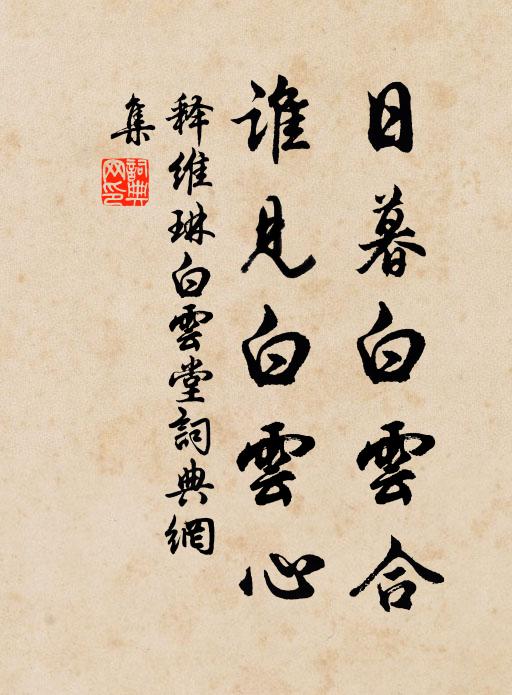 日暮白雲合
誰見白雲心
释維琳白雲堂詞典網
集
詞典網印